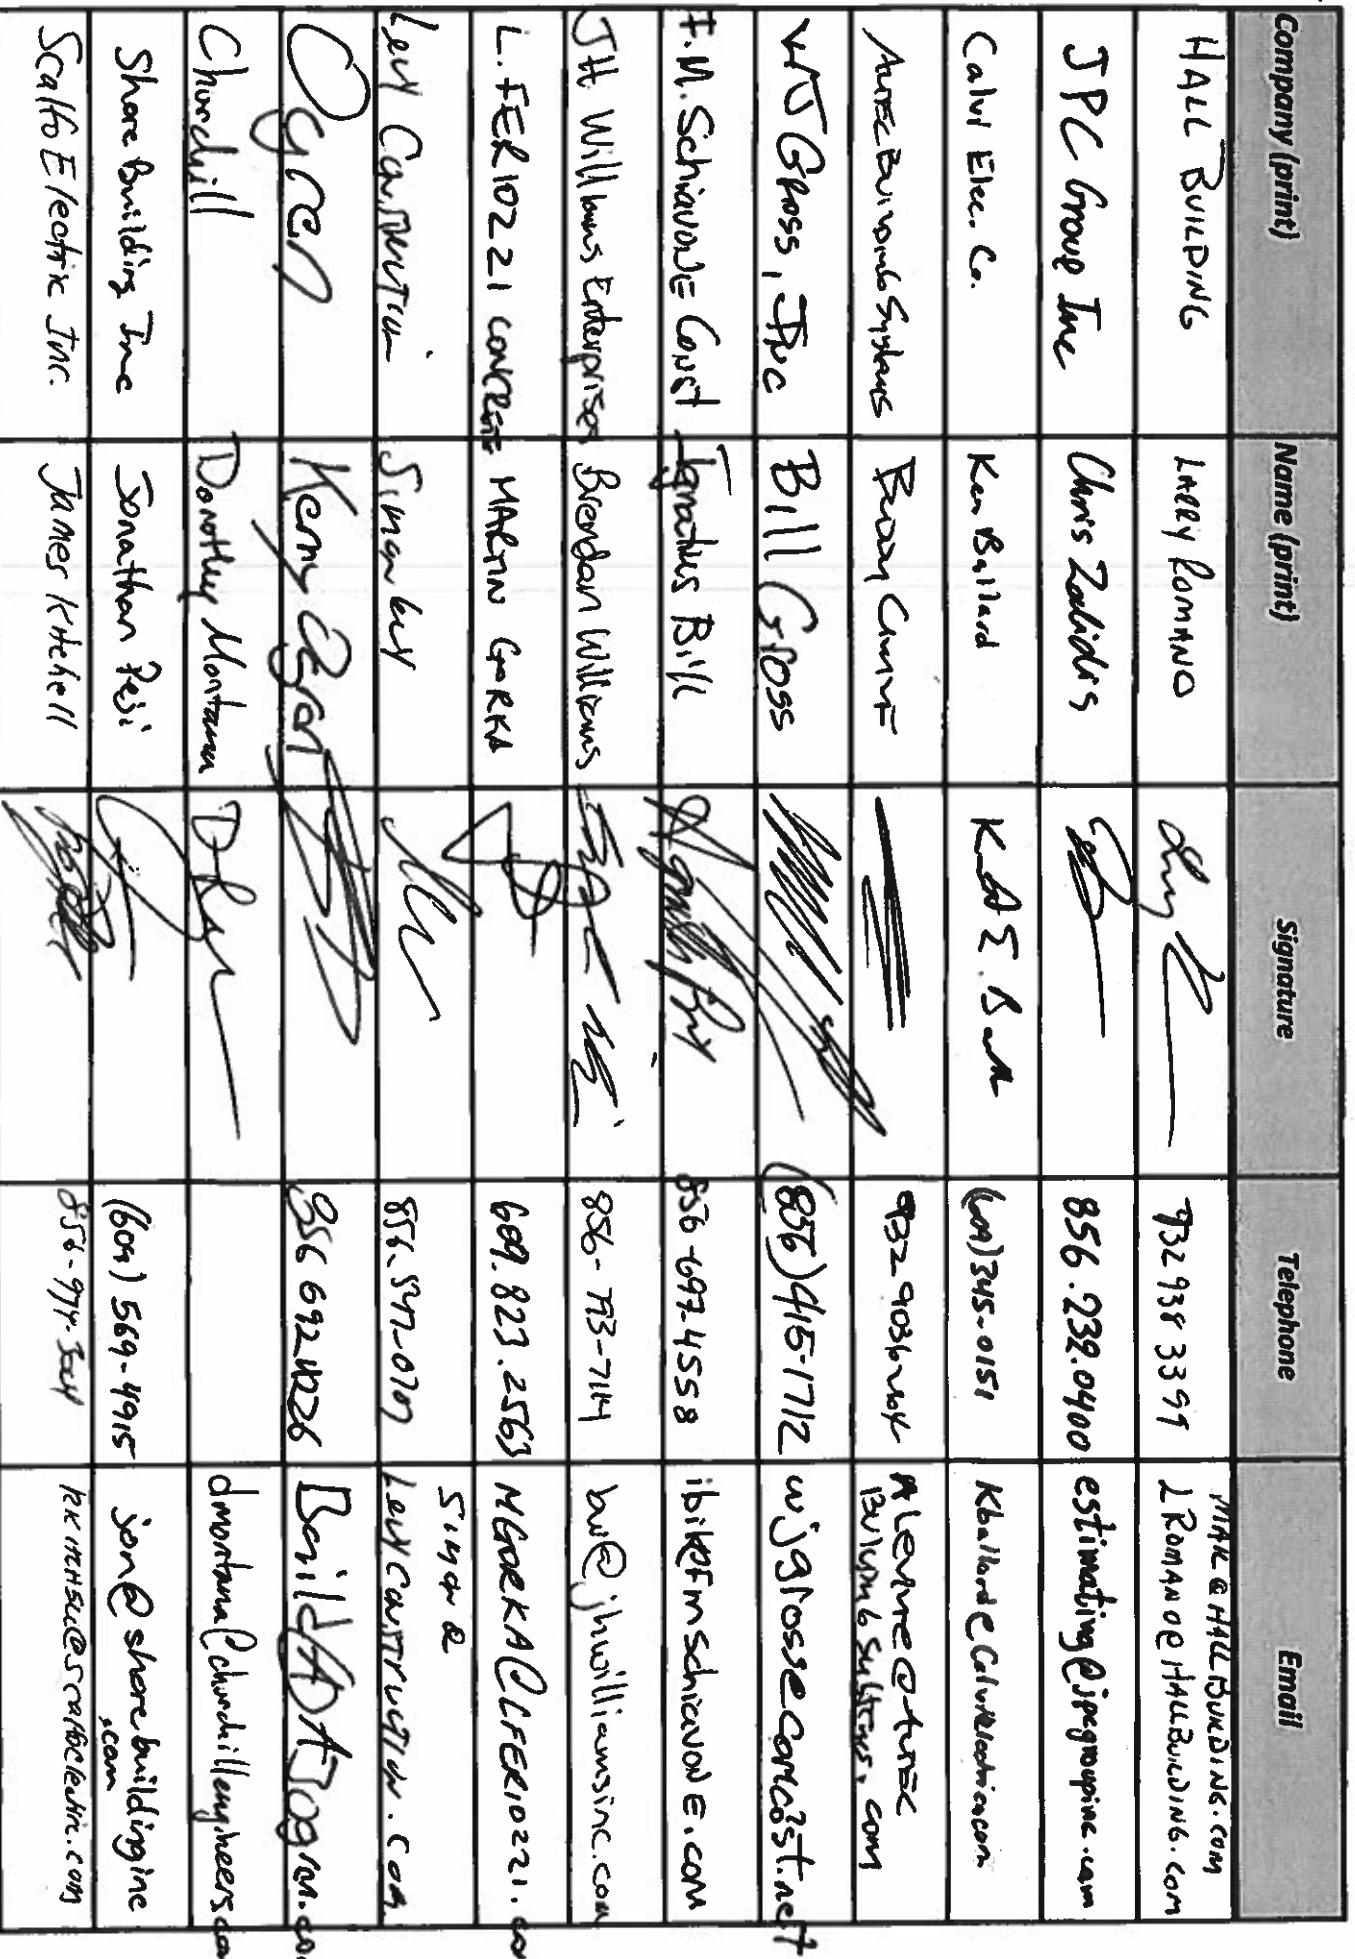 Company (print) Name (print) Signature Telephone Email
HALL BUILDING LARRY ROMANO 732 938 3399 MARK@HALLBUILDING.COM
LROMANO@HALLBUILDING.COM
JPC Group Inc Chris Zalidis 856.232.0400 estimating@jpcgroupinc.com
Calvi Elec. Co. Ken Ballard (609)345-0151 Kballard@calvielectric.com
WJ Gross, Inc Bill Gross (856)415-1712 wjgross@comcast.net
F.M. Schiavone Const Ignatius Bill 856-697-4558 ibill@fmschiavone.com
JH Williams Enterprises Brendan Williams 856-793-7114 bw@jhwilliamsinc.com
L. FERIOZZI CONCRETE MARTIN GORKA 609.823.2563 MGORKA@LFERIOZZI.co
Levy Construction Levy 856.547-0707 Levyconstruction.com
Ogren Build@Ogren.co
Churchill Dorothy Montana dmontana@churchillengineers.co
Shore Building Inc Jonathan (609) 569-4915 jon@shorebuildinginc
.com
Scalfo Electric Inc. James Kitchell